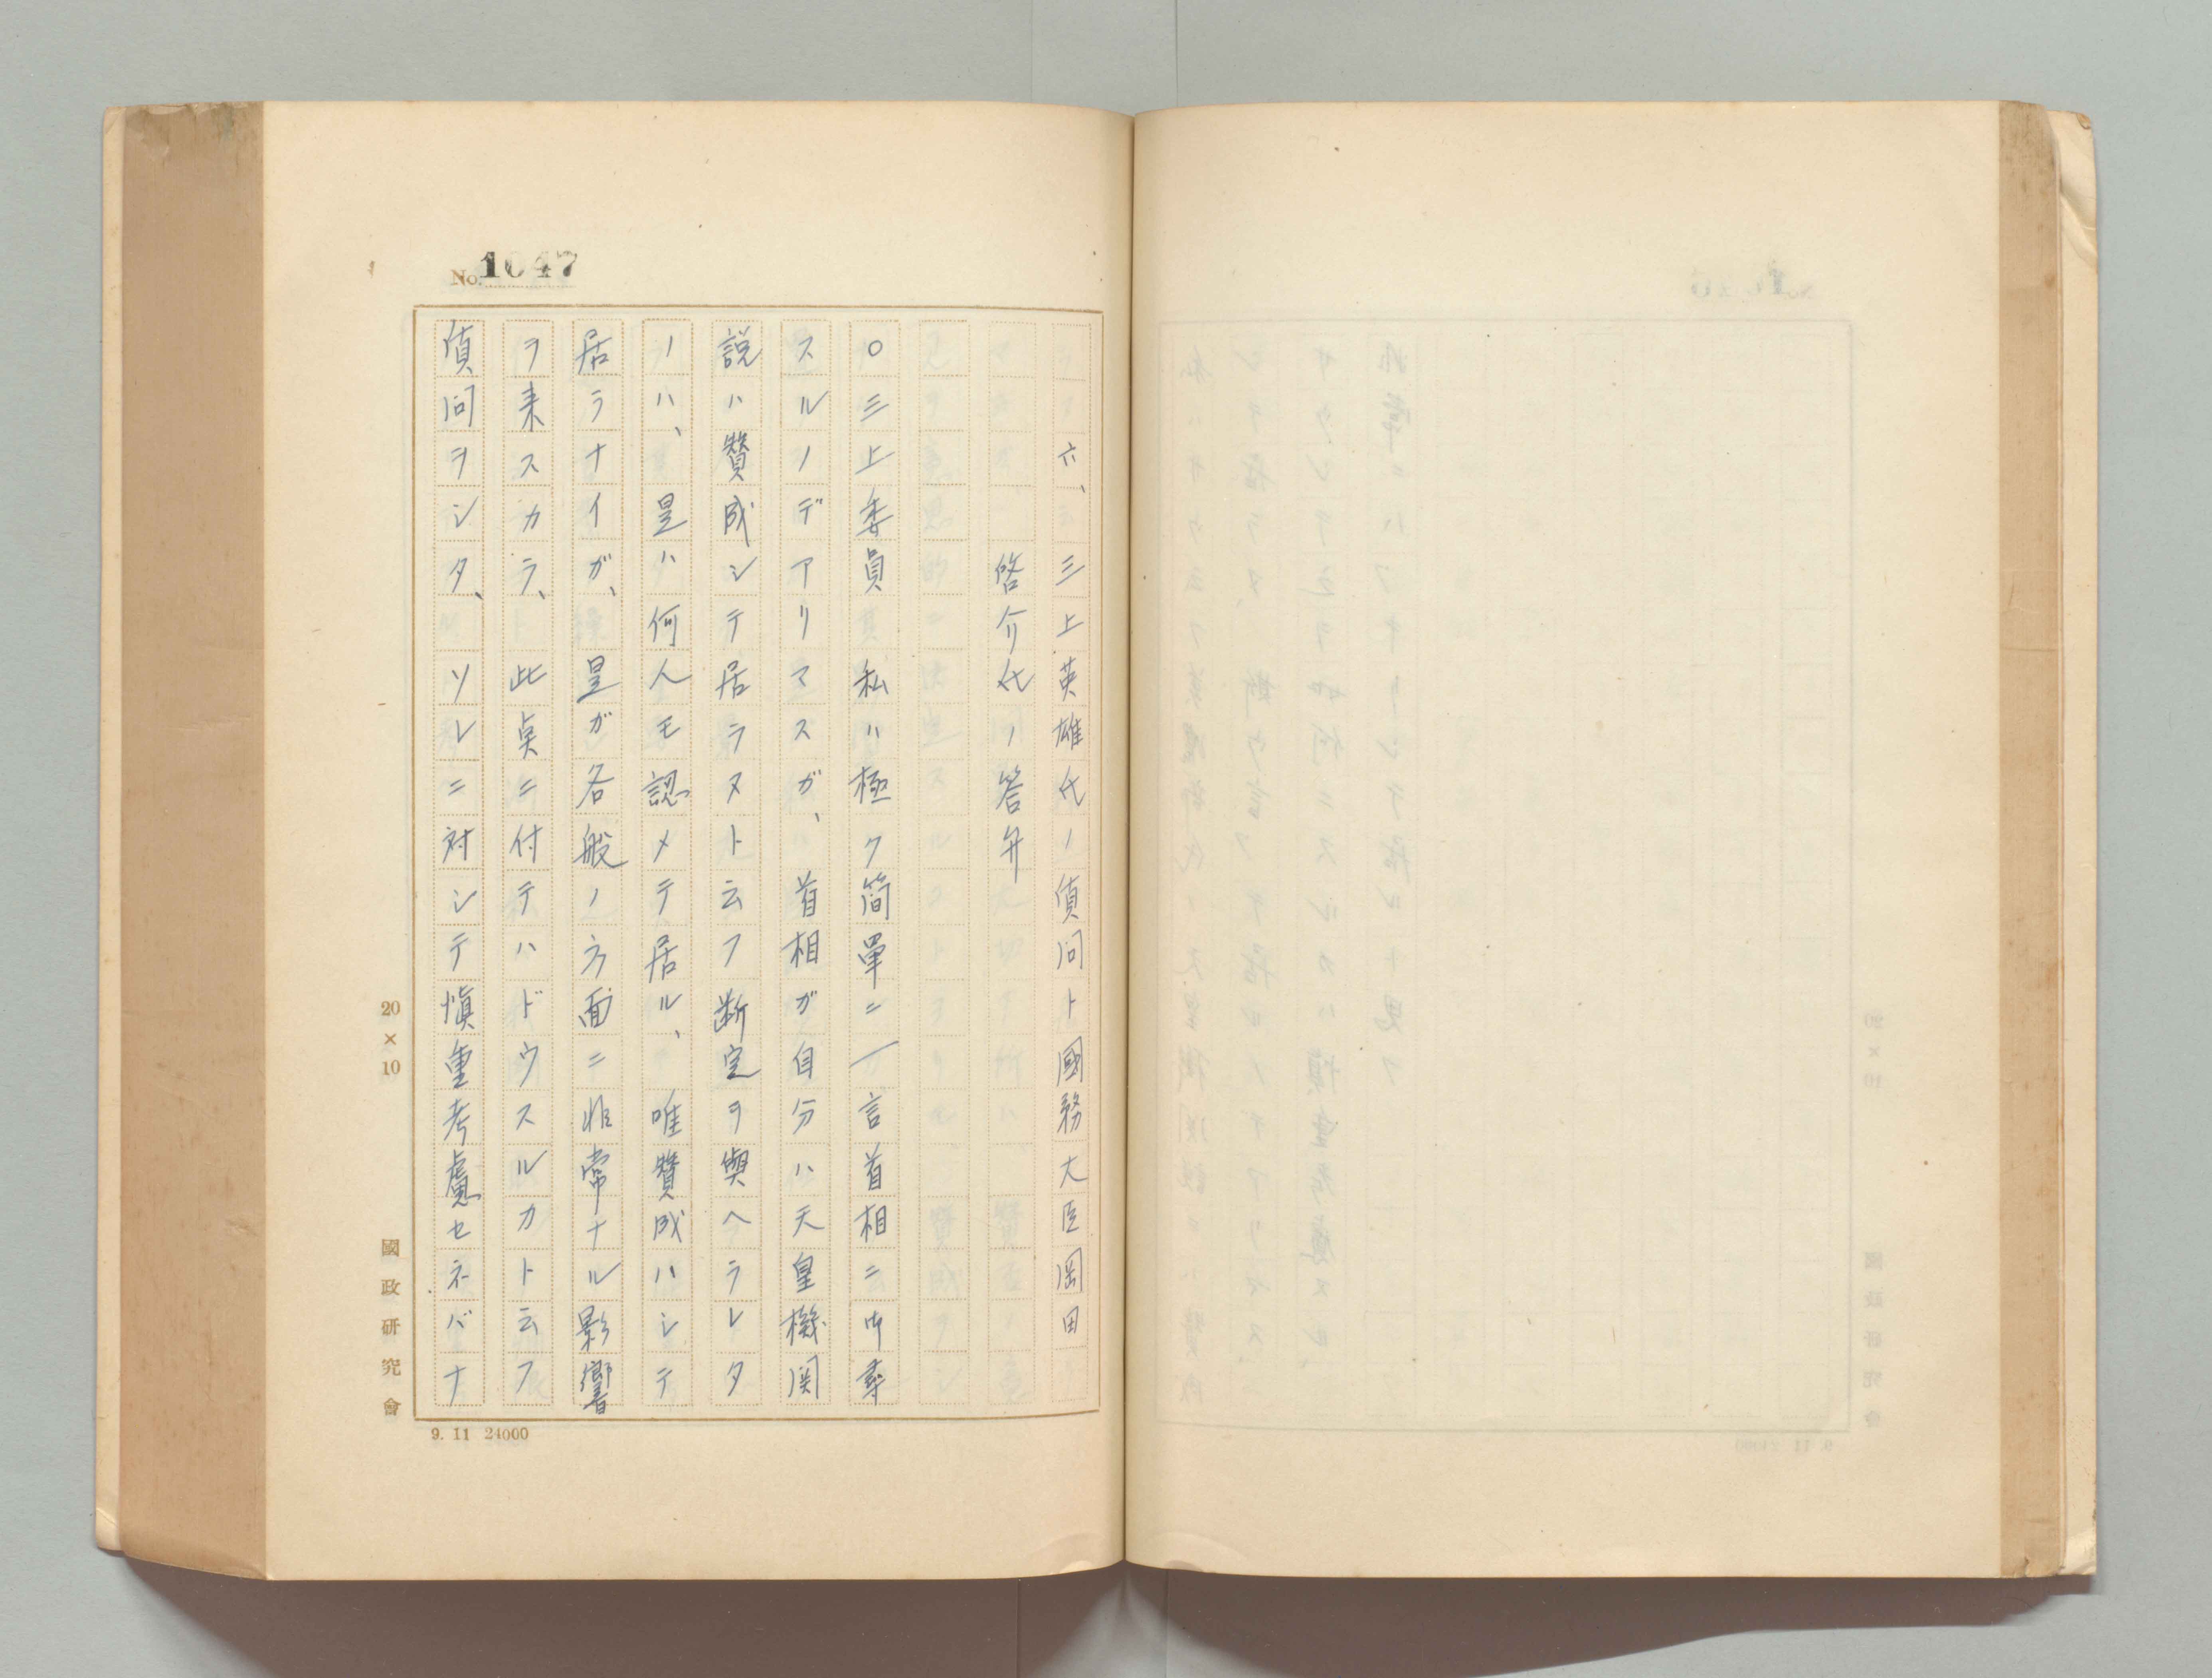 No. 1047
六、三上英雄氏ノ質問ト國務大臣岡田
啓介氏ノ答弁
〇三上委員 私ハ極ク簡單ニ一言首相ニ御尋
スルノデアリマスガ、首相ガ自分ハ天皇機関
説ハ賛成シテ居ラヌト云フ断定ヲ與ヘラレタ
ノハ、是ハ何人モ認メテ居ル、唯賛成ハシテ
居ラナイガ、是ガ各般ノ方面ニ非常ナル影響
ヲ来スカラ、此点ニ付テハドウスルカト云フ
質問ヲシタ、ソレニ対シテ愼重考慮セネバナ
20×10
國政研究會
9. 11 24000